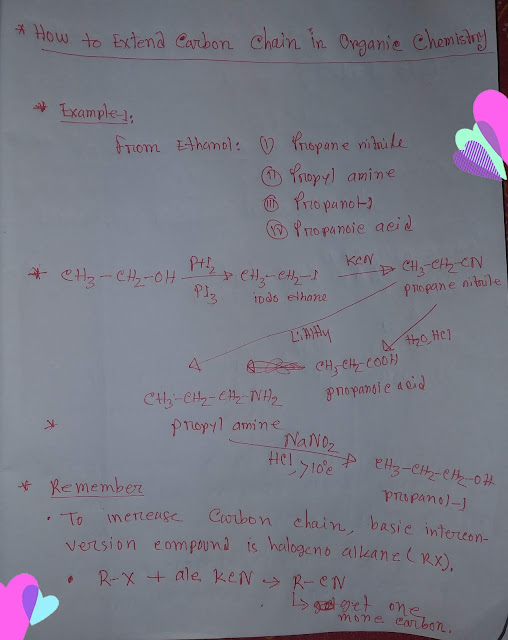 * How to Extend Carbon Chain in Organic Chemistry
* Example-1:
From Ethanol: (i) Propane nitrile
(ii) Propyl amine
(iii) Propanol-1
(iv) Propanoic acid
* CH3-CH2-OH P+I2 PI3 → CH3-CH2-I KCN → CH3-CH2-CN
iodo ethane propane nitrile
LiAlH4 H2O, HCl
CH3-CH2-COOH
propanoic acid
CH3-CH2-CH2-NH2
* propyl amine
NaNO2
HCl, >10°C CH3-CH2-CH2-OH
propanol-1
* Remember
• To increase Carbon chain, basic intercon-
version compound is halogeno alkane (RX).
• R-X + alc KCN → R-CN
↳ get one
more carbon.